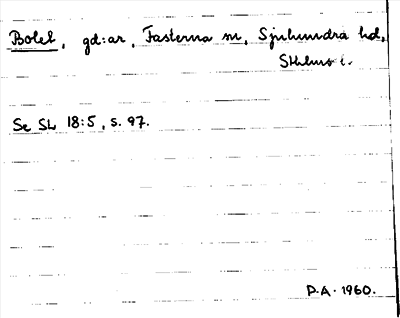 Bolet, gd:ar, Fasterna sn, Sjuhundra hd,
Sthlms l.
Se SL 18:5, s. 97.
P.A. 1960.